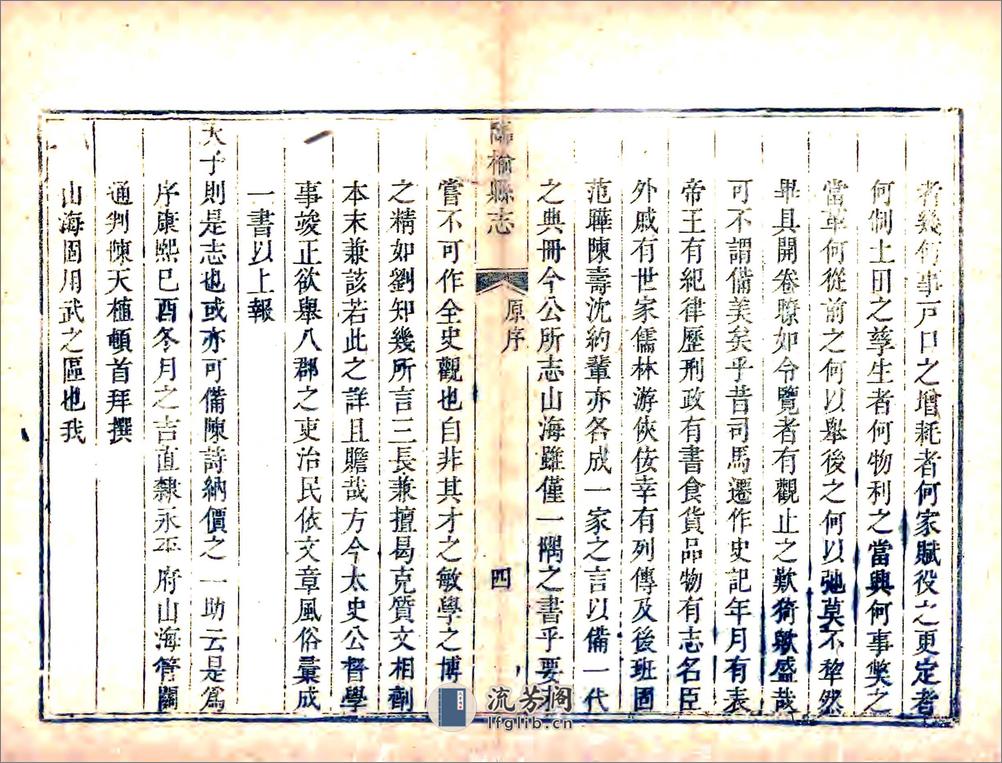 者幾何事戸口之增耗者何家賦役之更定者
何制土田之孳生者何物利之當興何事獘之
當革何從前之何以舉後之何以弛莫不犂然
畢具開卷瞭如令覽者有觀止之歎猗歟盛哉
可不謂備美矣乎昔司馬遷作史記年月有表
帝王有紀律歷刑政有書食貨品物有志名臣
外戚有世家儒林游俠佞幸有列傳及後班固
范曄陳壽沈約輩亦各成一家之言以備一代
之典冊今公所志山海雖僅一隅之書乎要
臨榆縣志
原序
四
嘗不可作全史觀也自非其才之敏學之博
之精如劉知幾所言三長兼擅曷克質文相劑
本末兼該若此之詳且贍哉方今太史公督學
事竣正欲舉八郡之吏治民依文章風俗彙成
一書以上報
天子則是志也或亦可備陳詩納價之一助云是爲
序康熙巳酉冬月之吉直隸永平府山海管關
通判陳天植頓首拜撰
山海固用武之區也我
流芳阁
lfglib.cn